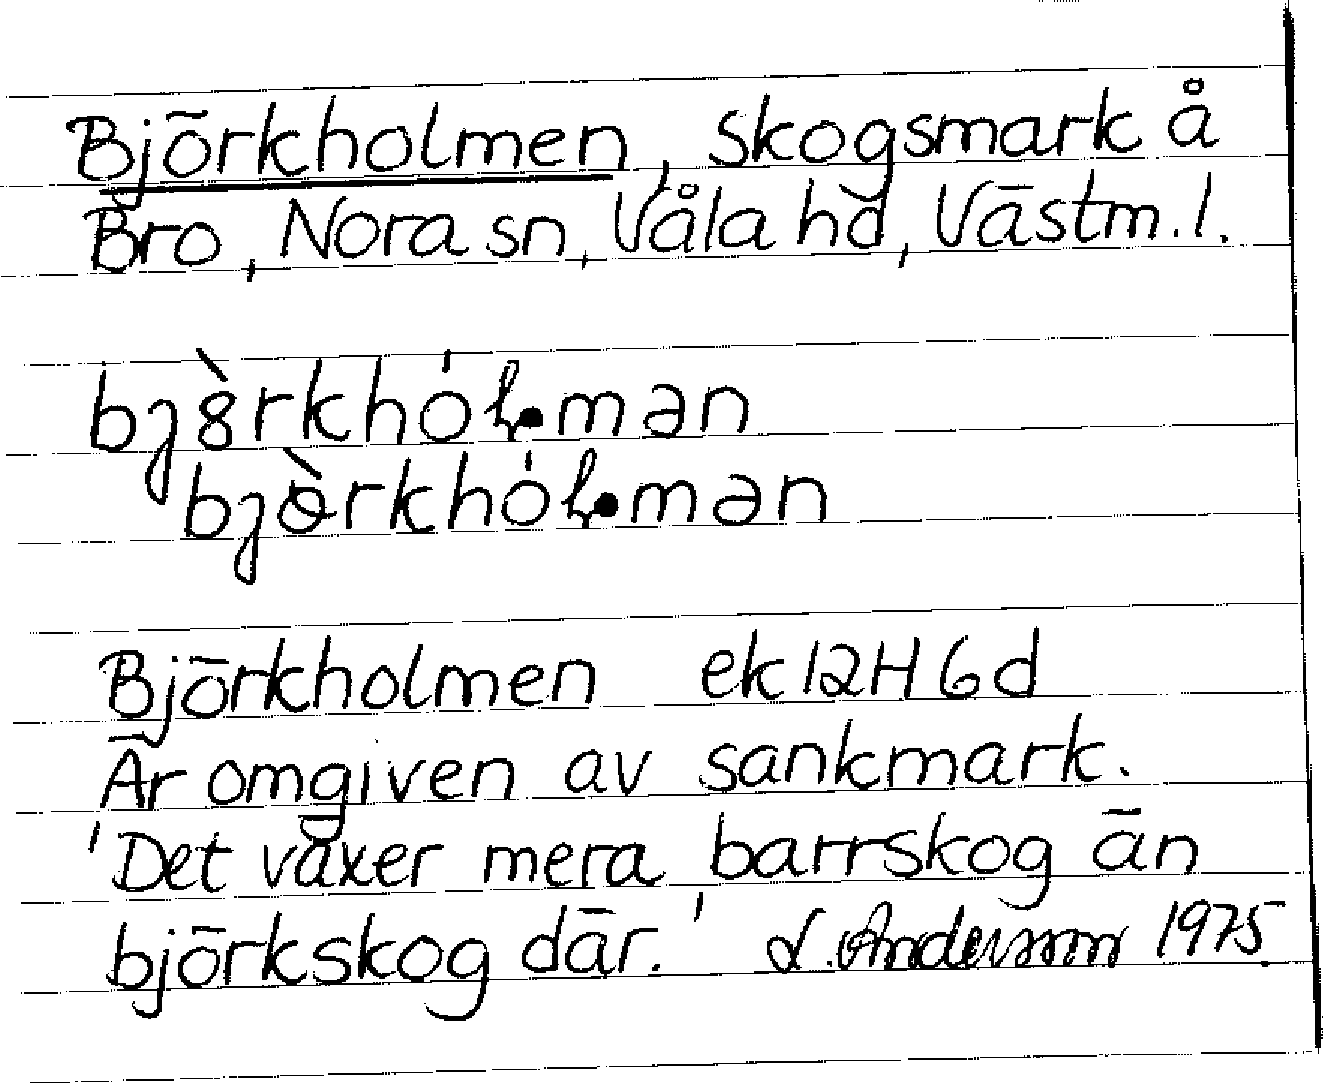 Björkholmen, skogsmark å
Bro, Nora sn, Våla hd, Västm.l.
Björkholmen ek 12H6d
Är omgiven av sankmark.
'Det växer mera barrskog än
björkskog där.' L. Andersson 1975